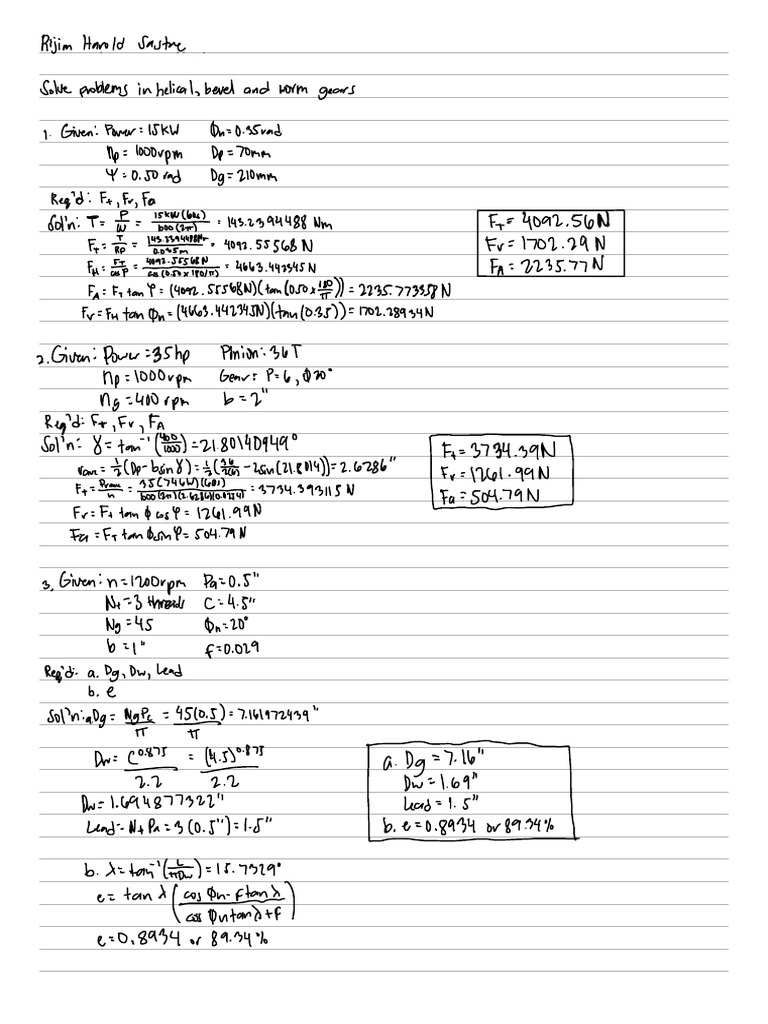 Rijim Harold Sastre
Solve problems in helical, bevel and worm gears
1. Given: Power = 15kW Φn = 0.35rad
np = 1000rpm Dp = 70mm
Ψ = 0.50 rad Dg = 210mm
Req'd: Ft, Fr, Fa
Sol'n: T = P/W = 15kW(60s)/1000(2π) = 143.2394488 Nm
FT = T/RP = 143.2394488Nm/0.035m = 4092.55568 N
FH = FT/cosφ = 4092.55568N/cos(0.50 x 180/π) = 4663.442345 N
FA = FT tan φ = (4092.55568N)(tan(0.50 x 180/π)) = 2235.773358 N
Fr = FH tan Φn = (4663.442345N)(tan(0.35)) = 1702.28934N
FT = 4092.56N
Fr = 1702.29 N
FA = 2235.77N
2. Given: Power = 35hp Pinion: 36T
np = 1000rpm Gear: P=6, Φ20°
ng = 400 rpm b = 2"
Req'd: Ft, Fr, FA
Sol'n: γ = tan⁻¹(400/1000) = 21.80140949°
rave = 1/2(Dp - b sin γ) = 1/2(36/2(6) - 2sin(21.8014)) = 2.6286"
FT = = 35(746W)(60s)/1000(2π)(2.6286)(0.0254) = 3734.393115 N
Fr = FT tan Φ cos φ = 1261.99N
Fa = FT tan Φ sin φ = 504.79 N
Ft = 3734.39N
Fr = 1261.99N
Fa = 504.79N
3. Given: n = 1200rpm Pa = 0.5"
Nt = 3 threads C = 4.5"
Ng = 45 Φn = 20°
b = 1" f = 0.029
Req'd: a. Dg, Dw, Lead
b. e
Sol'n: a. Dg = NgPc/π = 45(0.5)/π = 7.161972439"
Dw = C^0.875/2.2 = (4.5)^0.875/2.2
Dw = 1.694877322"
Lead = Nt Pa = 3(0.5") = 1.5"
a. Dg = 7.16"
Dw = 1.69"
Lead = 1.5"
b. e = 0.8934 or 89.34%
b. λ = tan⁻¹(L/πDw) = 15.7329°
e = tan λ (cos Φn - f tan λ/cos Φn tan λ + f)
e = 0.8934 or 89.34%